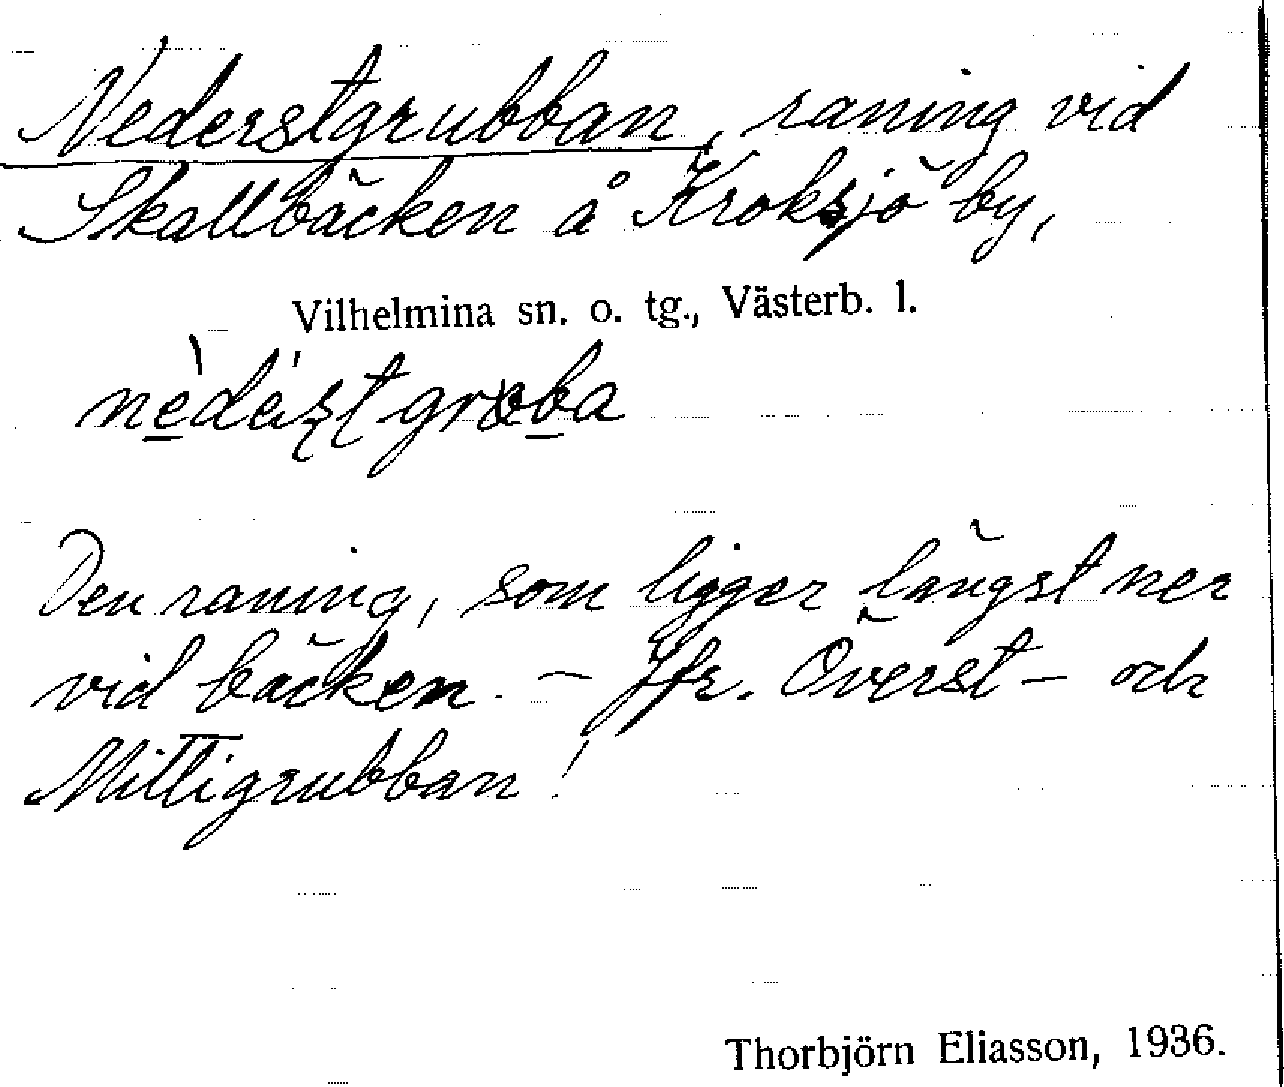 Nederstgrubban, raning vid
Skallbäcken å Kroksjö by,
Vilhelmina sn. o. tg., Västerb. l.
Den raning, som ligger längst ner
vid bäcken. – Jfr. Överst- och
Mittigrubban!
Thorbjörn Eliasson, 1936.